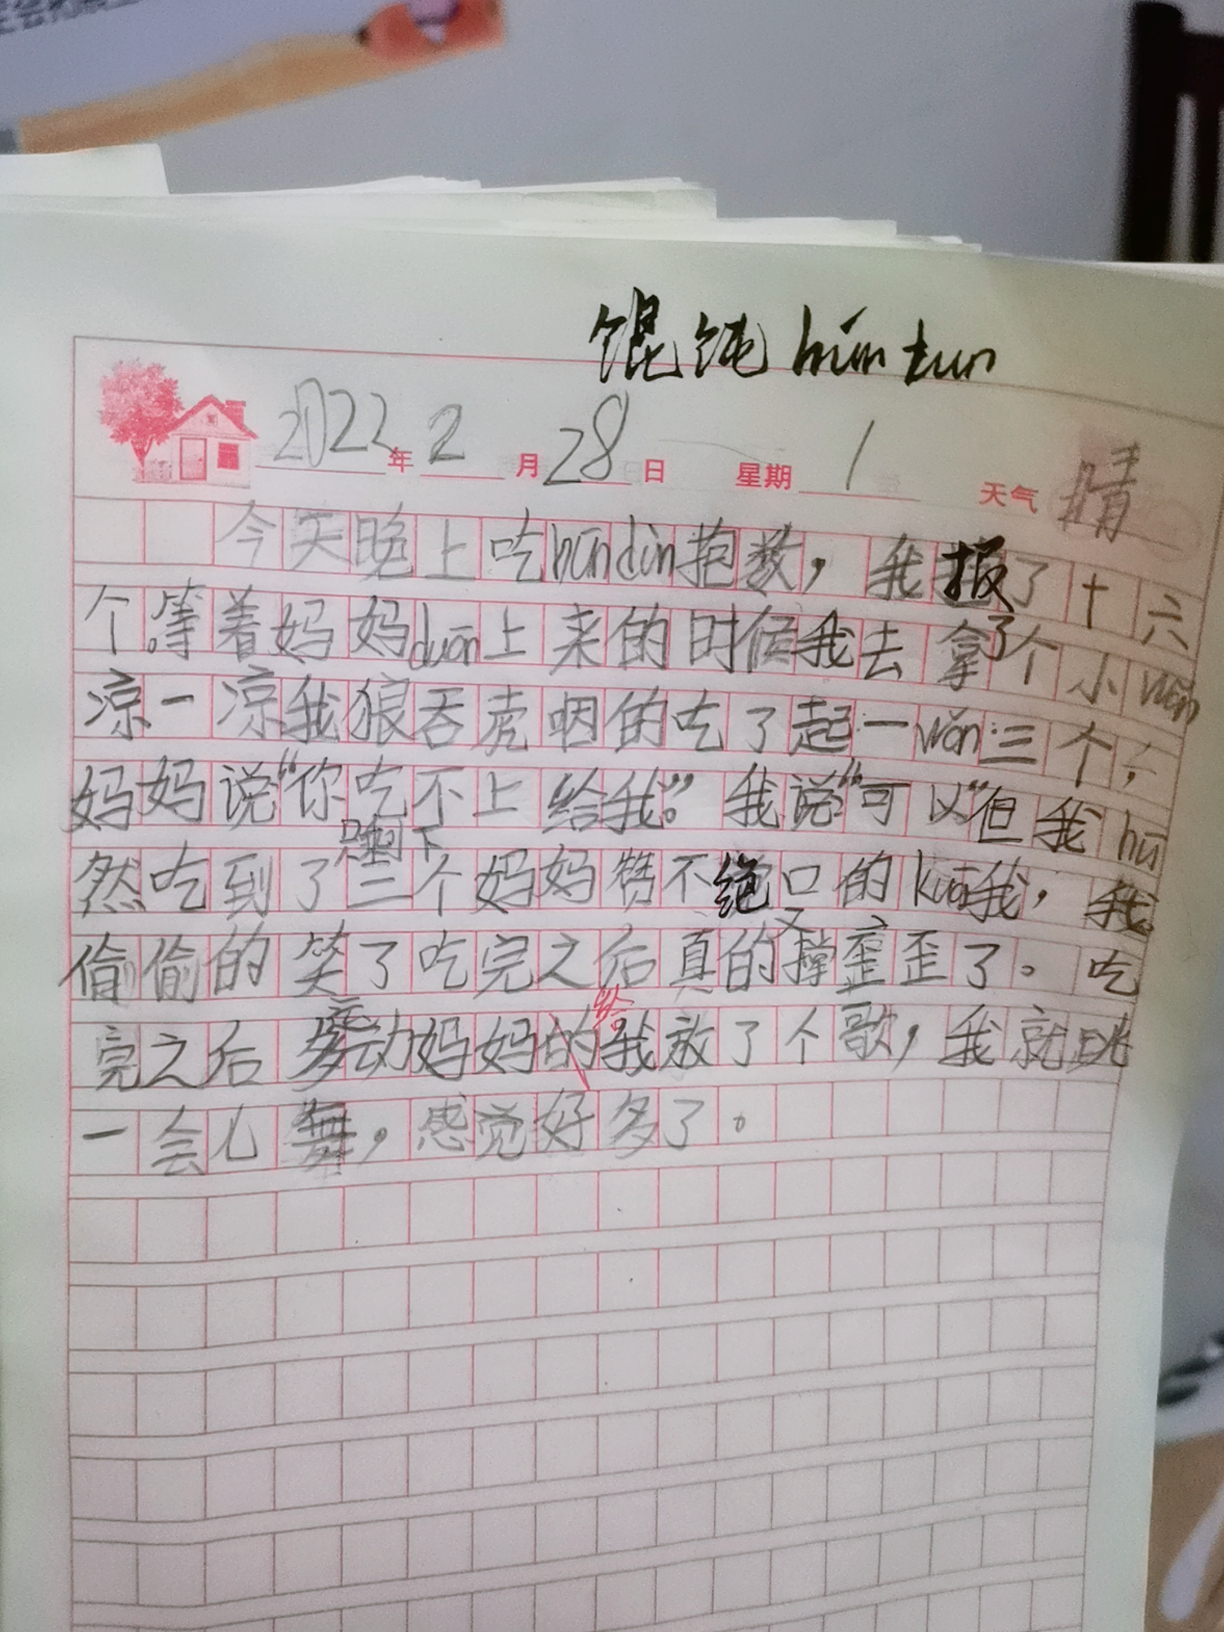 馄饨 hún tun
2022年2月28日 星期1 天气晴
今天晚上吃húndùn抱数，我报了十六
个。等着妈妈duān上来的时候我去拿了个小wǎn
凉一凉我狼吞虎咽的吃了起一wǎn三个，
妈妈说“你吃不上给我”。我说“可以”但我hū
然吃到了只剩下三个妈妈赞不绝口的kuā我，我
偷偷的笑了吃完之后真的又撑歪歪了。吃
完之后 动妈妈的给我放了个歌，我就跳
一会儿舞，感觉好多了。